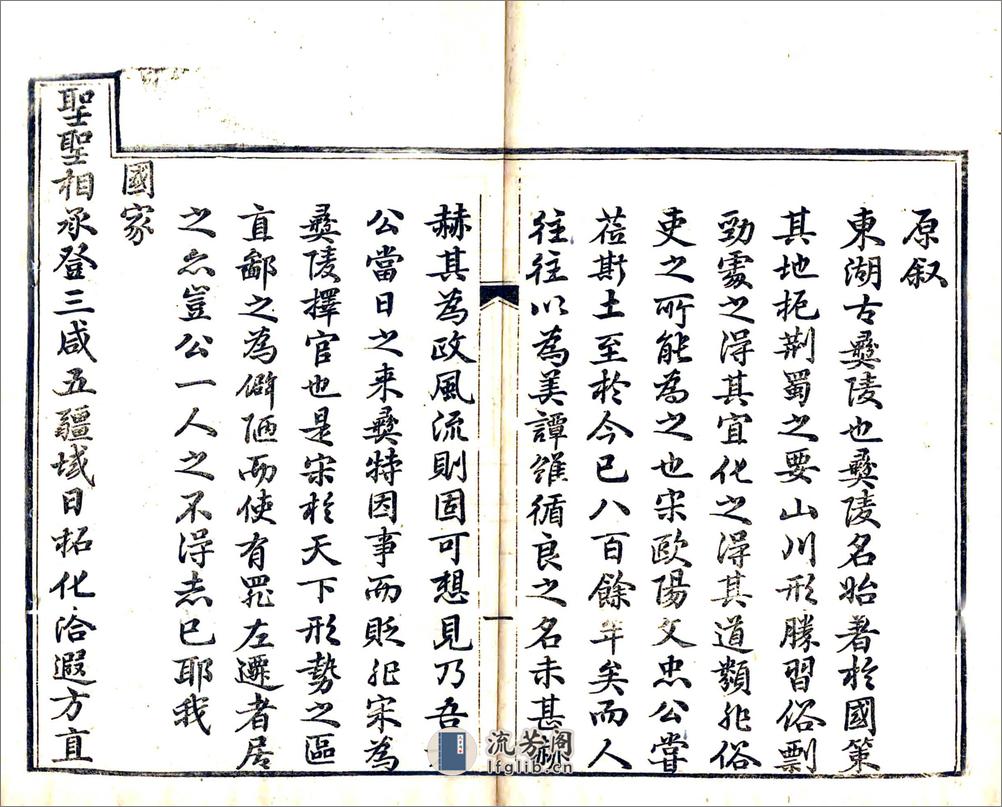 原叙
東湖古彝陵也彝陵名始著於國策
其地扼荆蜀之要山川形勝習俗剽
勁處之淂其宜化之淂其道類非俗
吏之所能為之也宋歐陽文忠公嘗
蒞斯土至於今已八百餘年矣而人
往往以為美譚雖循良之名未甚赫
赫其為政風流則固可想見乃吾
公當日之来彝特因事而貶非宋為
彝陵擇官也是宋於天下形勢之區
直鄙之為僻陋而使有罪左遷者居
之然豈公一人之不淂志已耶我
國家
聖聖相承登三咸五疆域日拓化洽遐方直
一
流芳阁
lfglib.cn